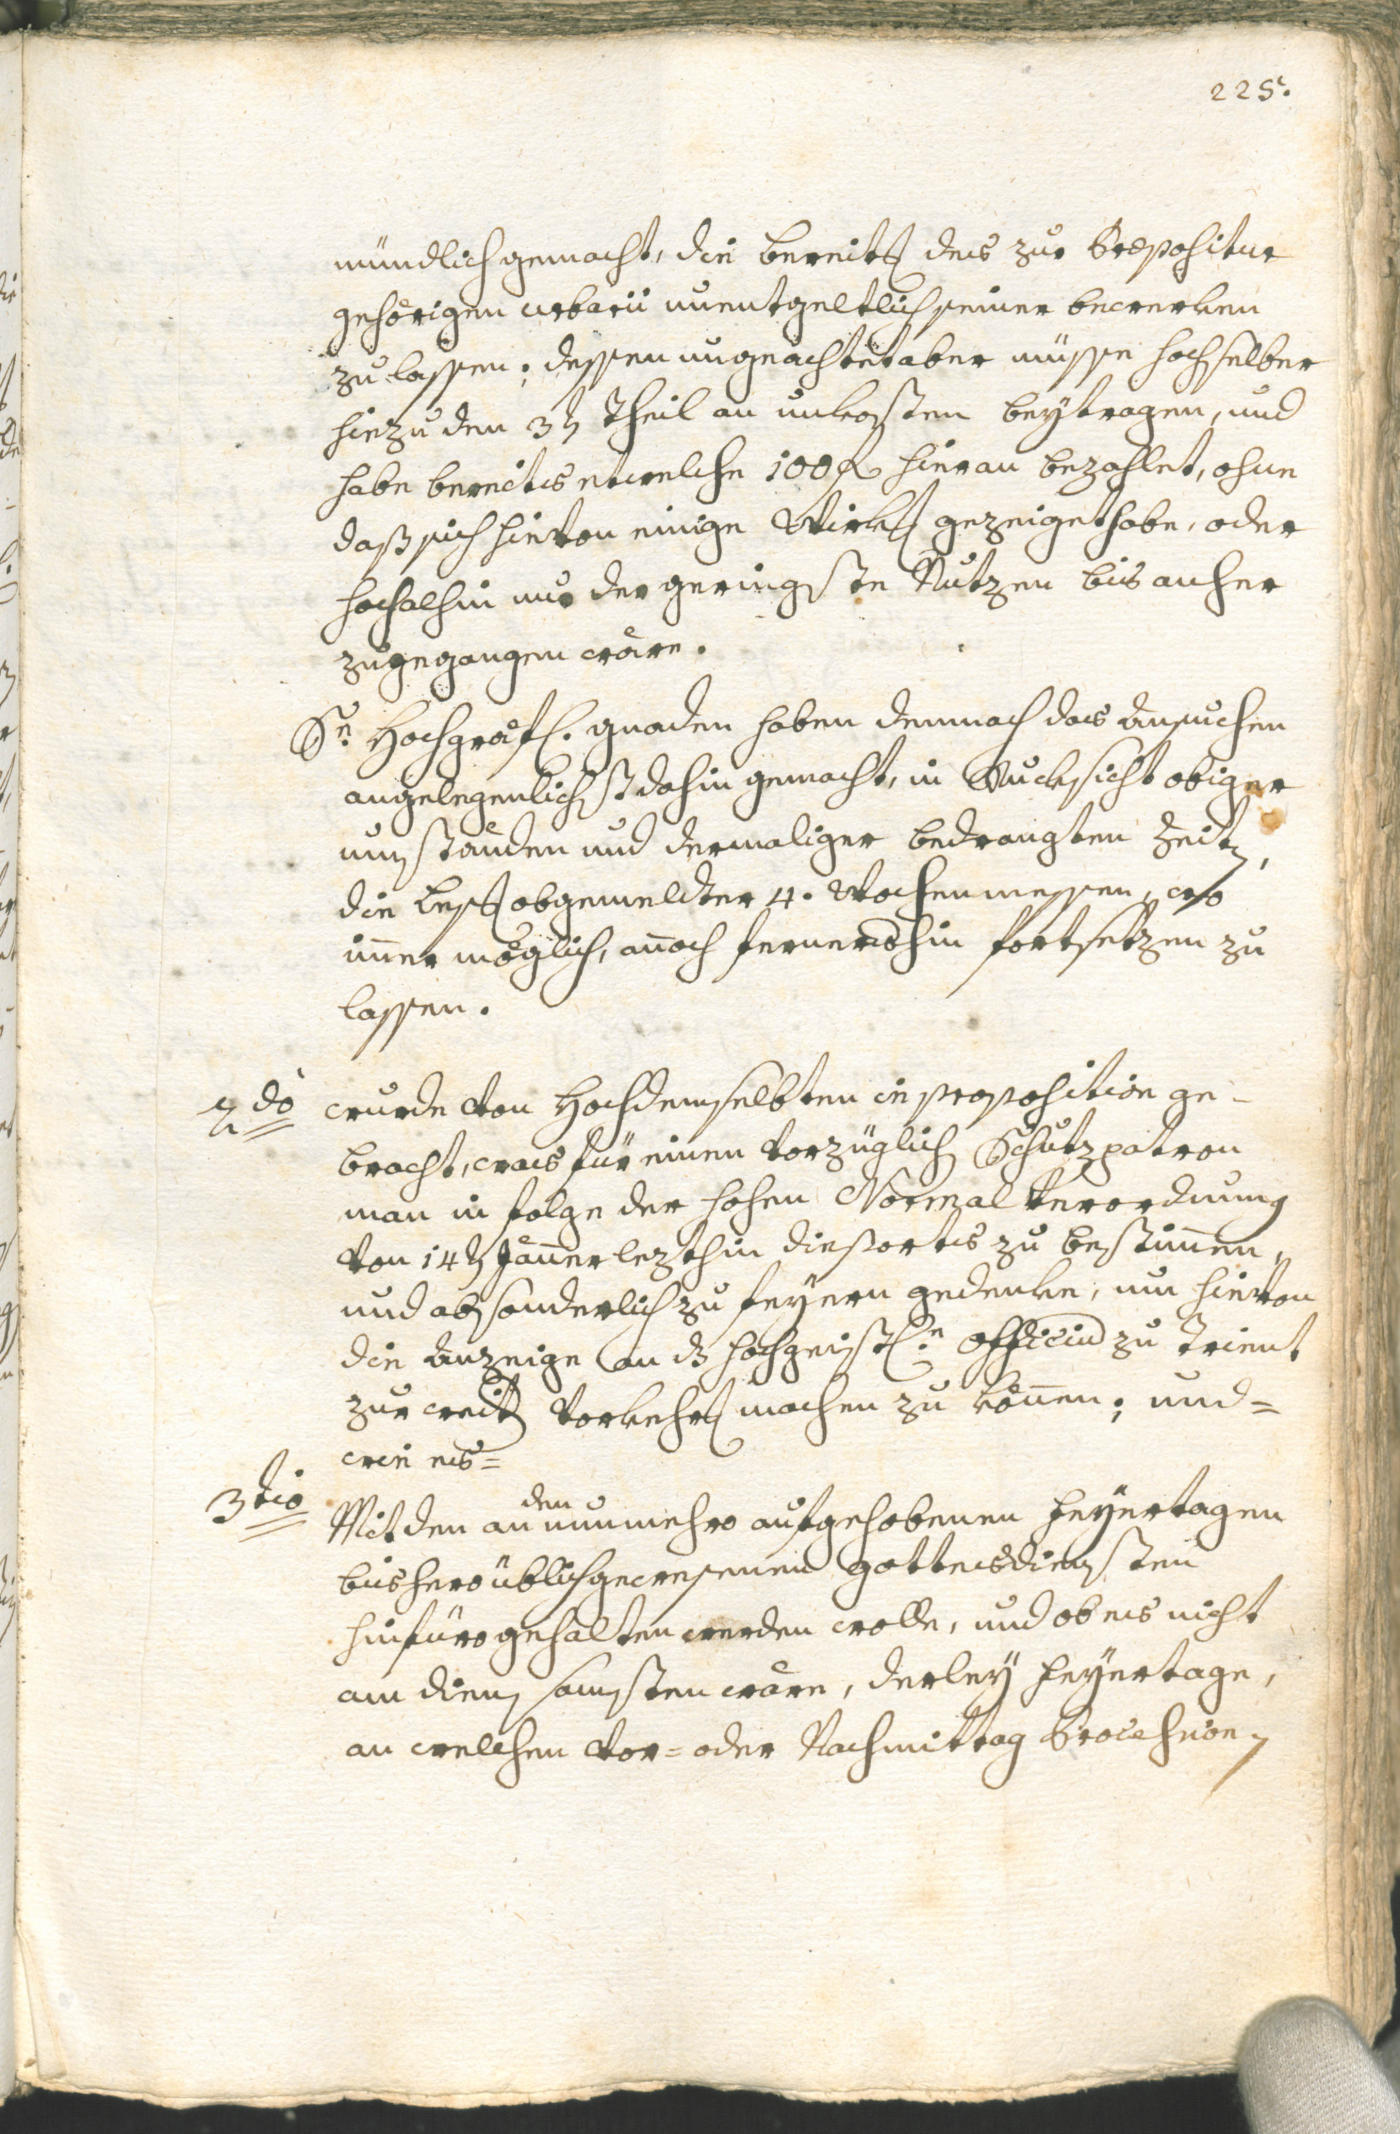 225.
mündlich gemacht, die bereits des zur Præpositur
gehörigen urbarii unentgeltlich seiner bewerken
zu lassen; dessen ungeachtet aber müsse hochselber
hiezu den 3ten Theil an unkosten beytragen, und
habe bereits etwelche 100 f hieran bezahlet, ohne
daß sich hievon einige Wirkh gezeiget habe, oder
hochalhin nur der geringste Nutzen bis anher
zugegangen wäre.
Sr. Hochgräfl. gnaden haben demnach das Ansuchen
angelegenlichst dahin gemacht, in Rucksicht obiger
umständen und dermaliger bedrangten Zeiten,
die Lesg obgemeldter 4. Wochenmessen, wo
im̄er möglich, an̄och fernershin fortsetzen zu
lassen.
2do wurde von Hochdemselbten in proposition ge-
bracht, was für einen vorzüglich Schutzpatron
man in folge der hohen Normal Verordnung
von 14ten Jän̄er lezthin diesorts zu bestim̄en,
und absonderlich zu feyern gedenke, um hievon
die Anzeige an ds hochgeistl.e Officium zu Trient
zur weitern Vorkehrg machen zu kön̄en; und=
wie es=
3tio Mit den an den nunmehro aufgehobenen Feyertagen
bishero üblich gewesenen gottesdiensten
hinfüro gehalten werden wolle, und ob es nicht
am diensamsten wäre, derley Feyertage,
an welchen Vor= oder Nachmittag Processionen